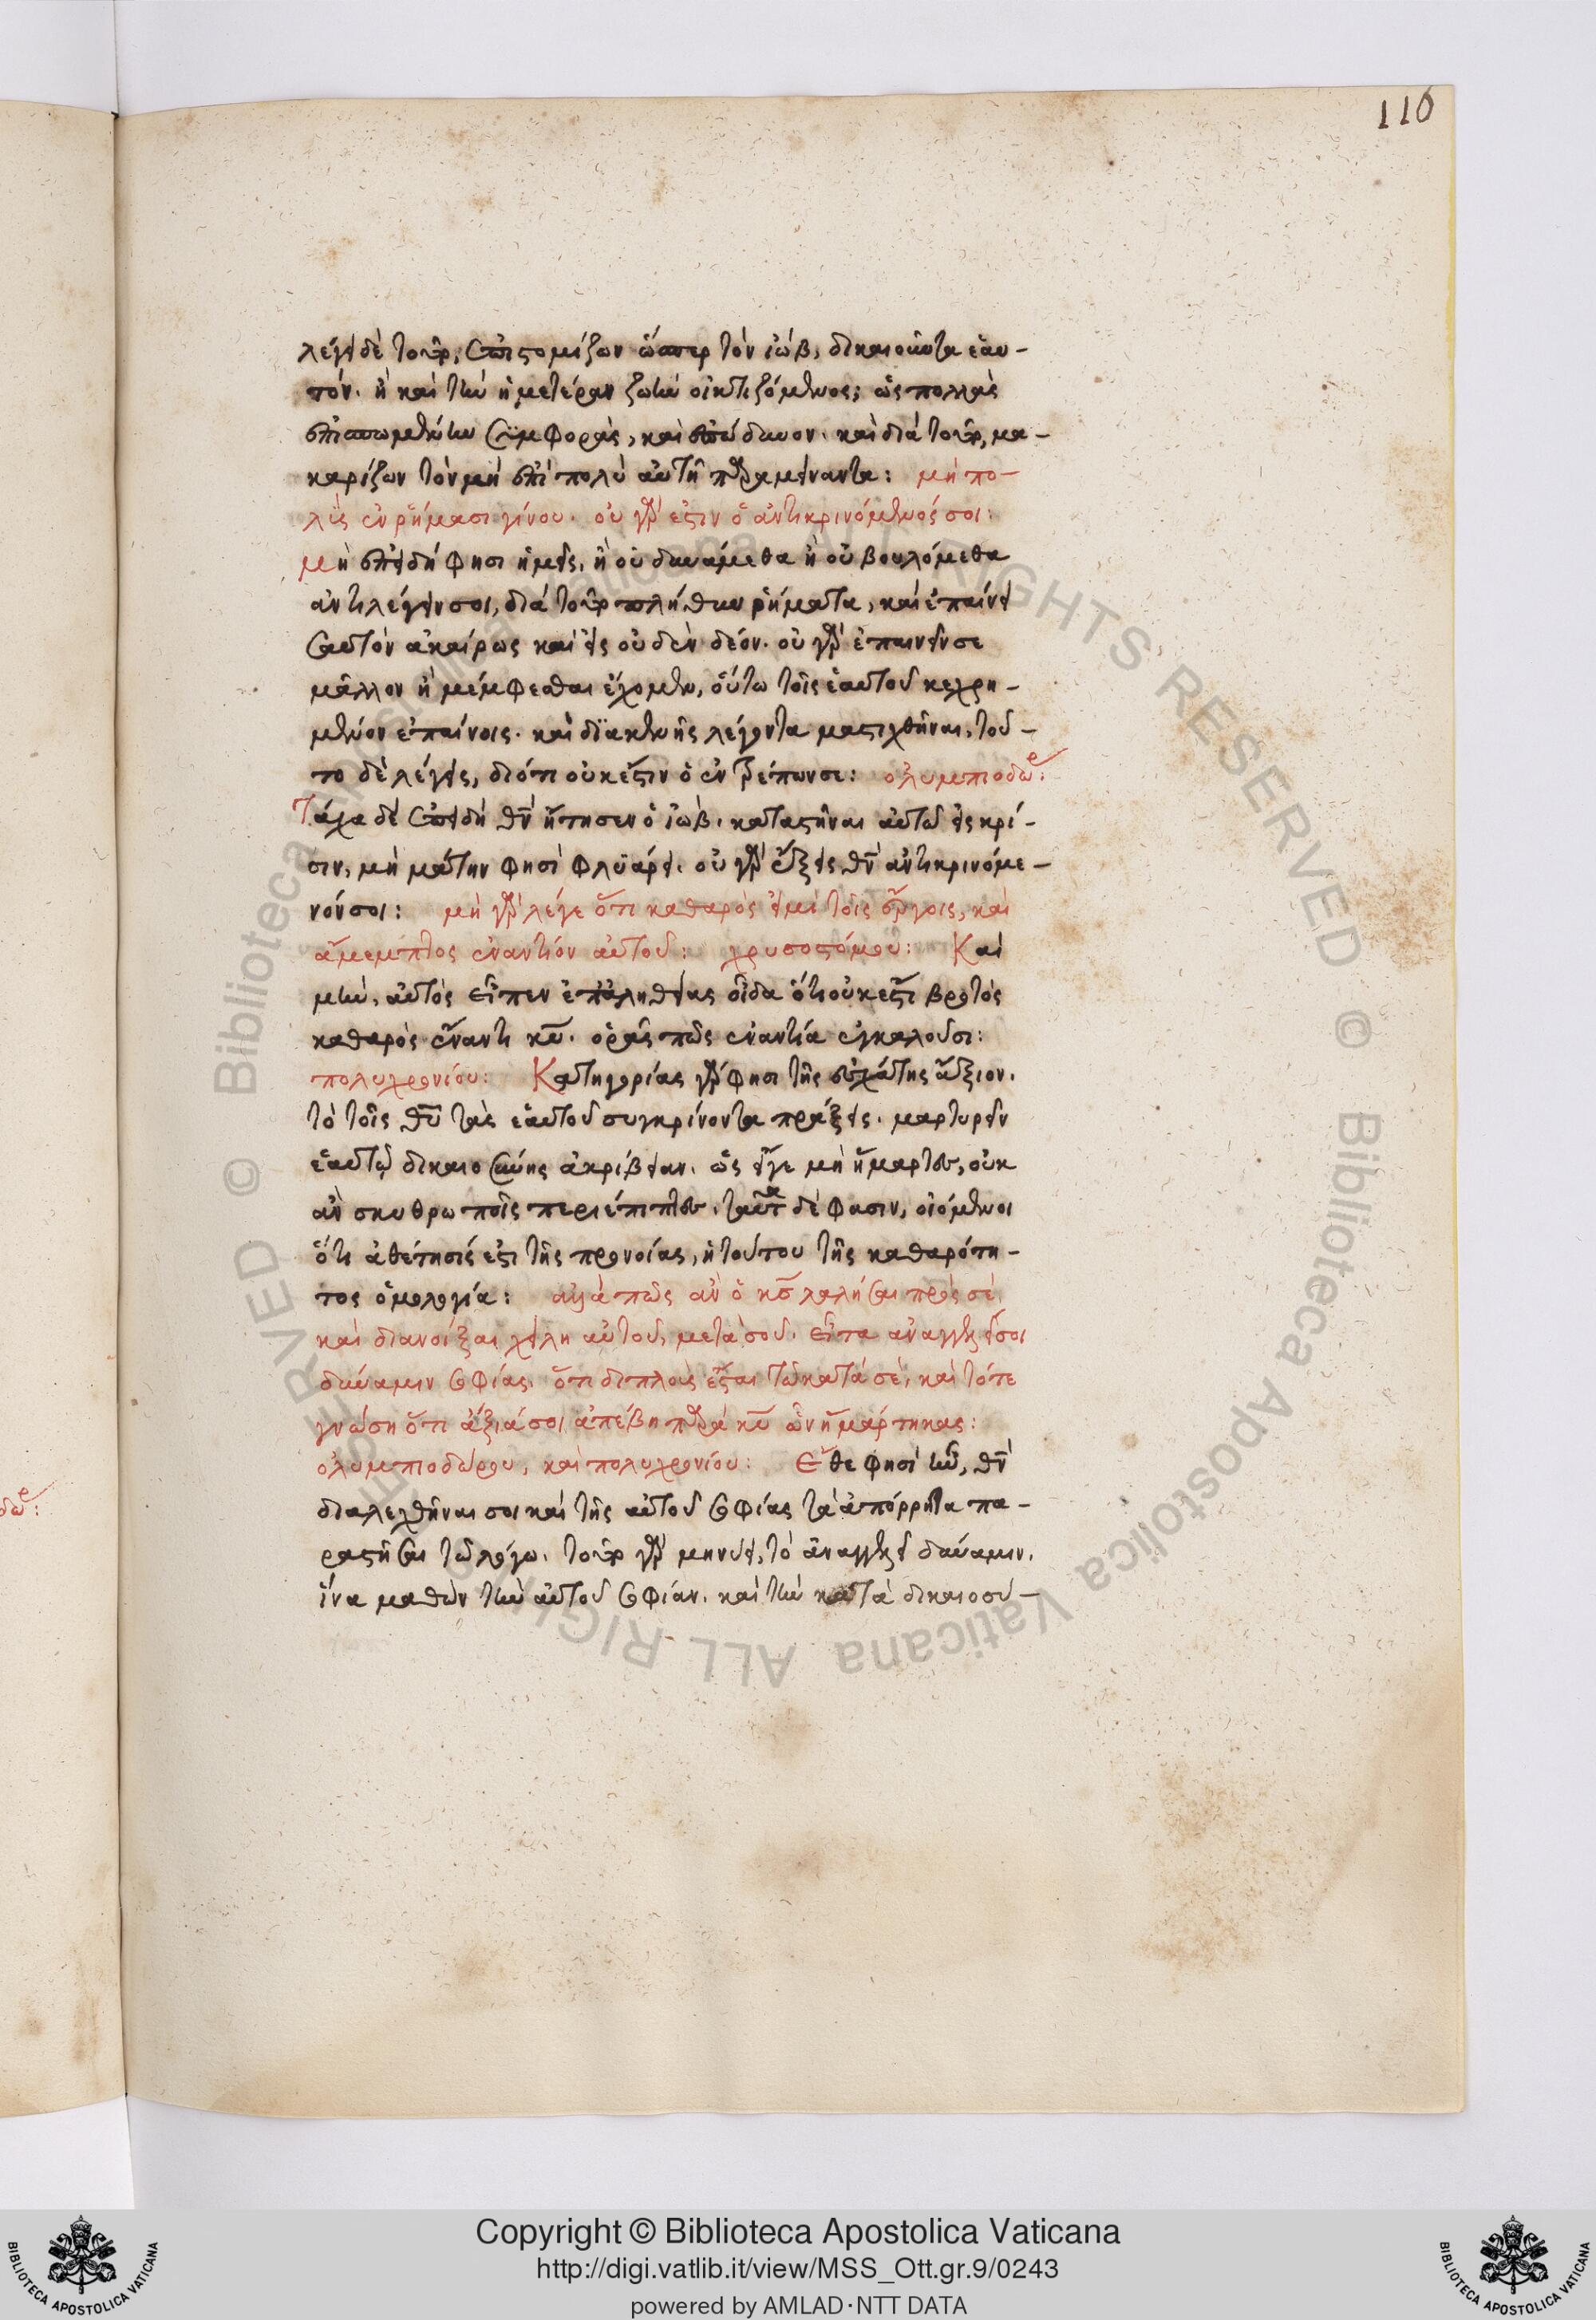 116
λέγει δὲ τοῦτο, ἐπιστομίζων ὥσπερ τὸν ἰὼβ, δικαιοῦντα ἑαυ-
τόν. ἢ καὶ τὴν ἡμετέραν ζωὴν οἰκτιζόμενος; ὡς πολλὰς
ἐπισπωμένην συμφορὰς, καὶ ἐπώδυνον. καὶ διὰ τοῦτο, μα-
καρίζων τὸν μὴ ἐπὶ πολὺ αὐτῇ παραμείναντα: μὴ πο-
λὺς ἐν ῥήμασι γίνου. οὐ γάρ ἐστιν ὁ ἀντικρινόμενός σοι:
μὴ ἐπειδή φησι ἡμεῖς, ἢ οὐ δυνάμεθα ἢ οὐ βουλόμεθα
ἀντιλέγειν σοι, διὰ τοῦτο πλήθυνε ῥήματα, καὶ ἐπαίνει
σαυτὸν ἀκαίρως καὶ εἰς οὐδὲν δέον. οὐ γὰρ ἐπαινεῖν σε
μᾶλλον ἢ μέμφεσθαι ἔχομεν, οὕτω τοῖς ἑαυτοῦ κεχρη-
μένον ἐπαίνοις. καὶ διακενῆς λέγοντα μαστιχθῆναι, τοῦ-
το δὲ λέγεις, διότι οὐκ ἔστιν ὁ ἐντρέπων σε: ὀλυμπιοδώρ:
Τάχα δὲ ἐπειδὴ θν ᾔτησεν ὁ ἰὼβ. καταστῆναι αὐτῷ εἰς κρί-
σιν, μὴ μάτην φησὶ φλυάρει. οὐ γὰρ ἕξεις θν ἀντικρινόμε-
νόν σοι: μὴ γὰρ λέγε ὅτι καθαρός εἰμι τοῖς ἔργοις, καὶ
ἄμεμπτος ἐναντίον αὐτοῦ: χρυσοστόμου: Καὶ
μὴν, αὐτὸς εἶπεν ἐπ' ἀληθείας οἶδα ὅτι οὐκ ἔστι βροτὸς
καθαρὸς ἔναντι κυ. ὁρᾷς πῶς ἐναντία ἐγκαλοῦσι:
πολυχρονίου: Κατηγορίας γάρ φησι τῆς ἐσχάτης ἄξιον.
τὸ τοῖς θυ τὰς ἑαυτοῦ συγκρίνοντα πράξεις. μαρτυρεῖν
ἑαυτῷ δικαιοσύνης ἀκρίβειαν. ὡς εἴγε μὴ ἥμαρτες, οὐκ
ἂν σκυθρωποῖς περιέπιπτες. ταῦτα δέ φασιν, οἰόμενοι
ὅτι ἀθέτησίς ἐστι τῆς προνοίας, ἡ τούτου τῆς καθαρότη-
τος ὁμολογία: ἀλλὰ πῶς ἂν ὁ κς λαλήσαι πρὸς σὲ,
καὶ διανοίξαι χείλη αὐτοῦ, μετὰ σοῦ. εἶτα ἀναγγελεῖ σοι
δύναμιν σοφίας. ὅτι διπλοῦς ἔσται τῶν κατὰ σέ, καὶ τότε
γνώσῃ ὅτι ἄξιά σοι ἀπέβη παρὰ κυ ὧν ἡμάρτηκας:
ὀλυμπιοδώρου, καὶ πολυχρονίου: Εἴθε φησὶ ἦν, θν
διαλεχθῆναι σοι καὶ τῆς αὐτοῦ σοφίας τὰ ἀπόρρητα πα-
ραστῆσαι τῷ λόγῳ. τοῦτο γὰρ μηνύει, τὸ ἀναγγελεῖ δύναμιν.
ἵνα μαθὼν τὴν αὐτοῦ σοφίαν. καὶ τὴν κατὰ δικαιοσύ-
δώρ:
Copyright © Biblioteca Apostolica Vaticana
http://digi.vatlib.it/view/MSS_Ott.gr.9/0243
powered by AMLAD·NTT DATA
BIBLIOTECA APOSTOLICA VATICANA
BIBLIOTECA APOSTOLICA VATICANA
© Biblioteca Apostolica Vaticana ALL RIGHTS RESERVED © Biblioteca Apostolica Vaticana ALL RIGHTS RESERVED